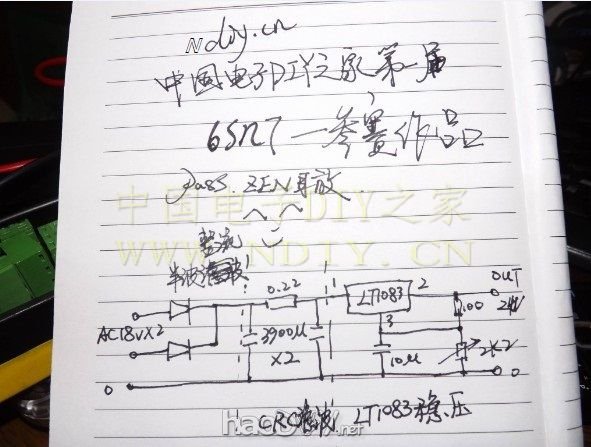 Ndiy.cn
中国电子DIY之家第一届
6SN7 一参赛作品
Pass. ZEN耳放
中国电子DIY之家
WWW.NDIY.CN
整流
半波
0.22
LT1083
2
3
OUT
24V
100
AC18V×2
3900μ
×2
10μ
2K2
0
0
CRC滤波 LT1083稳压
.net